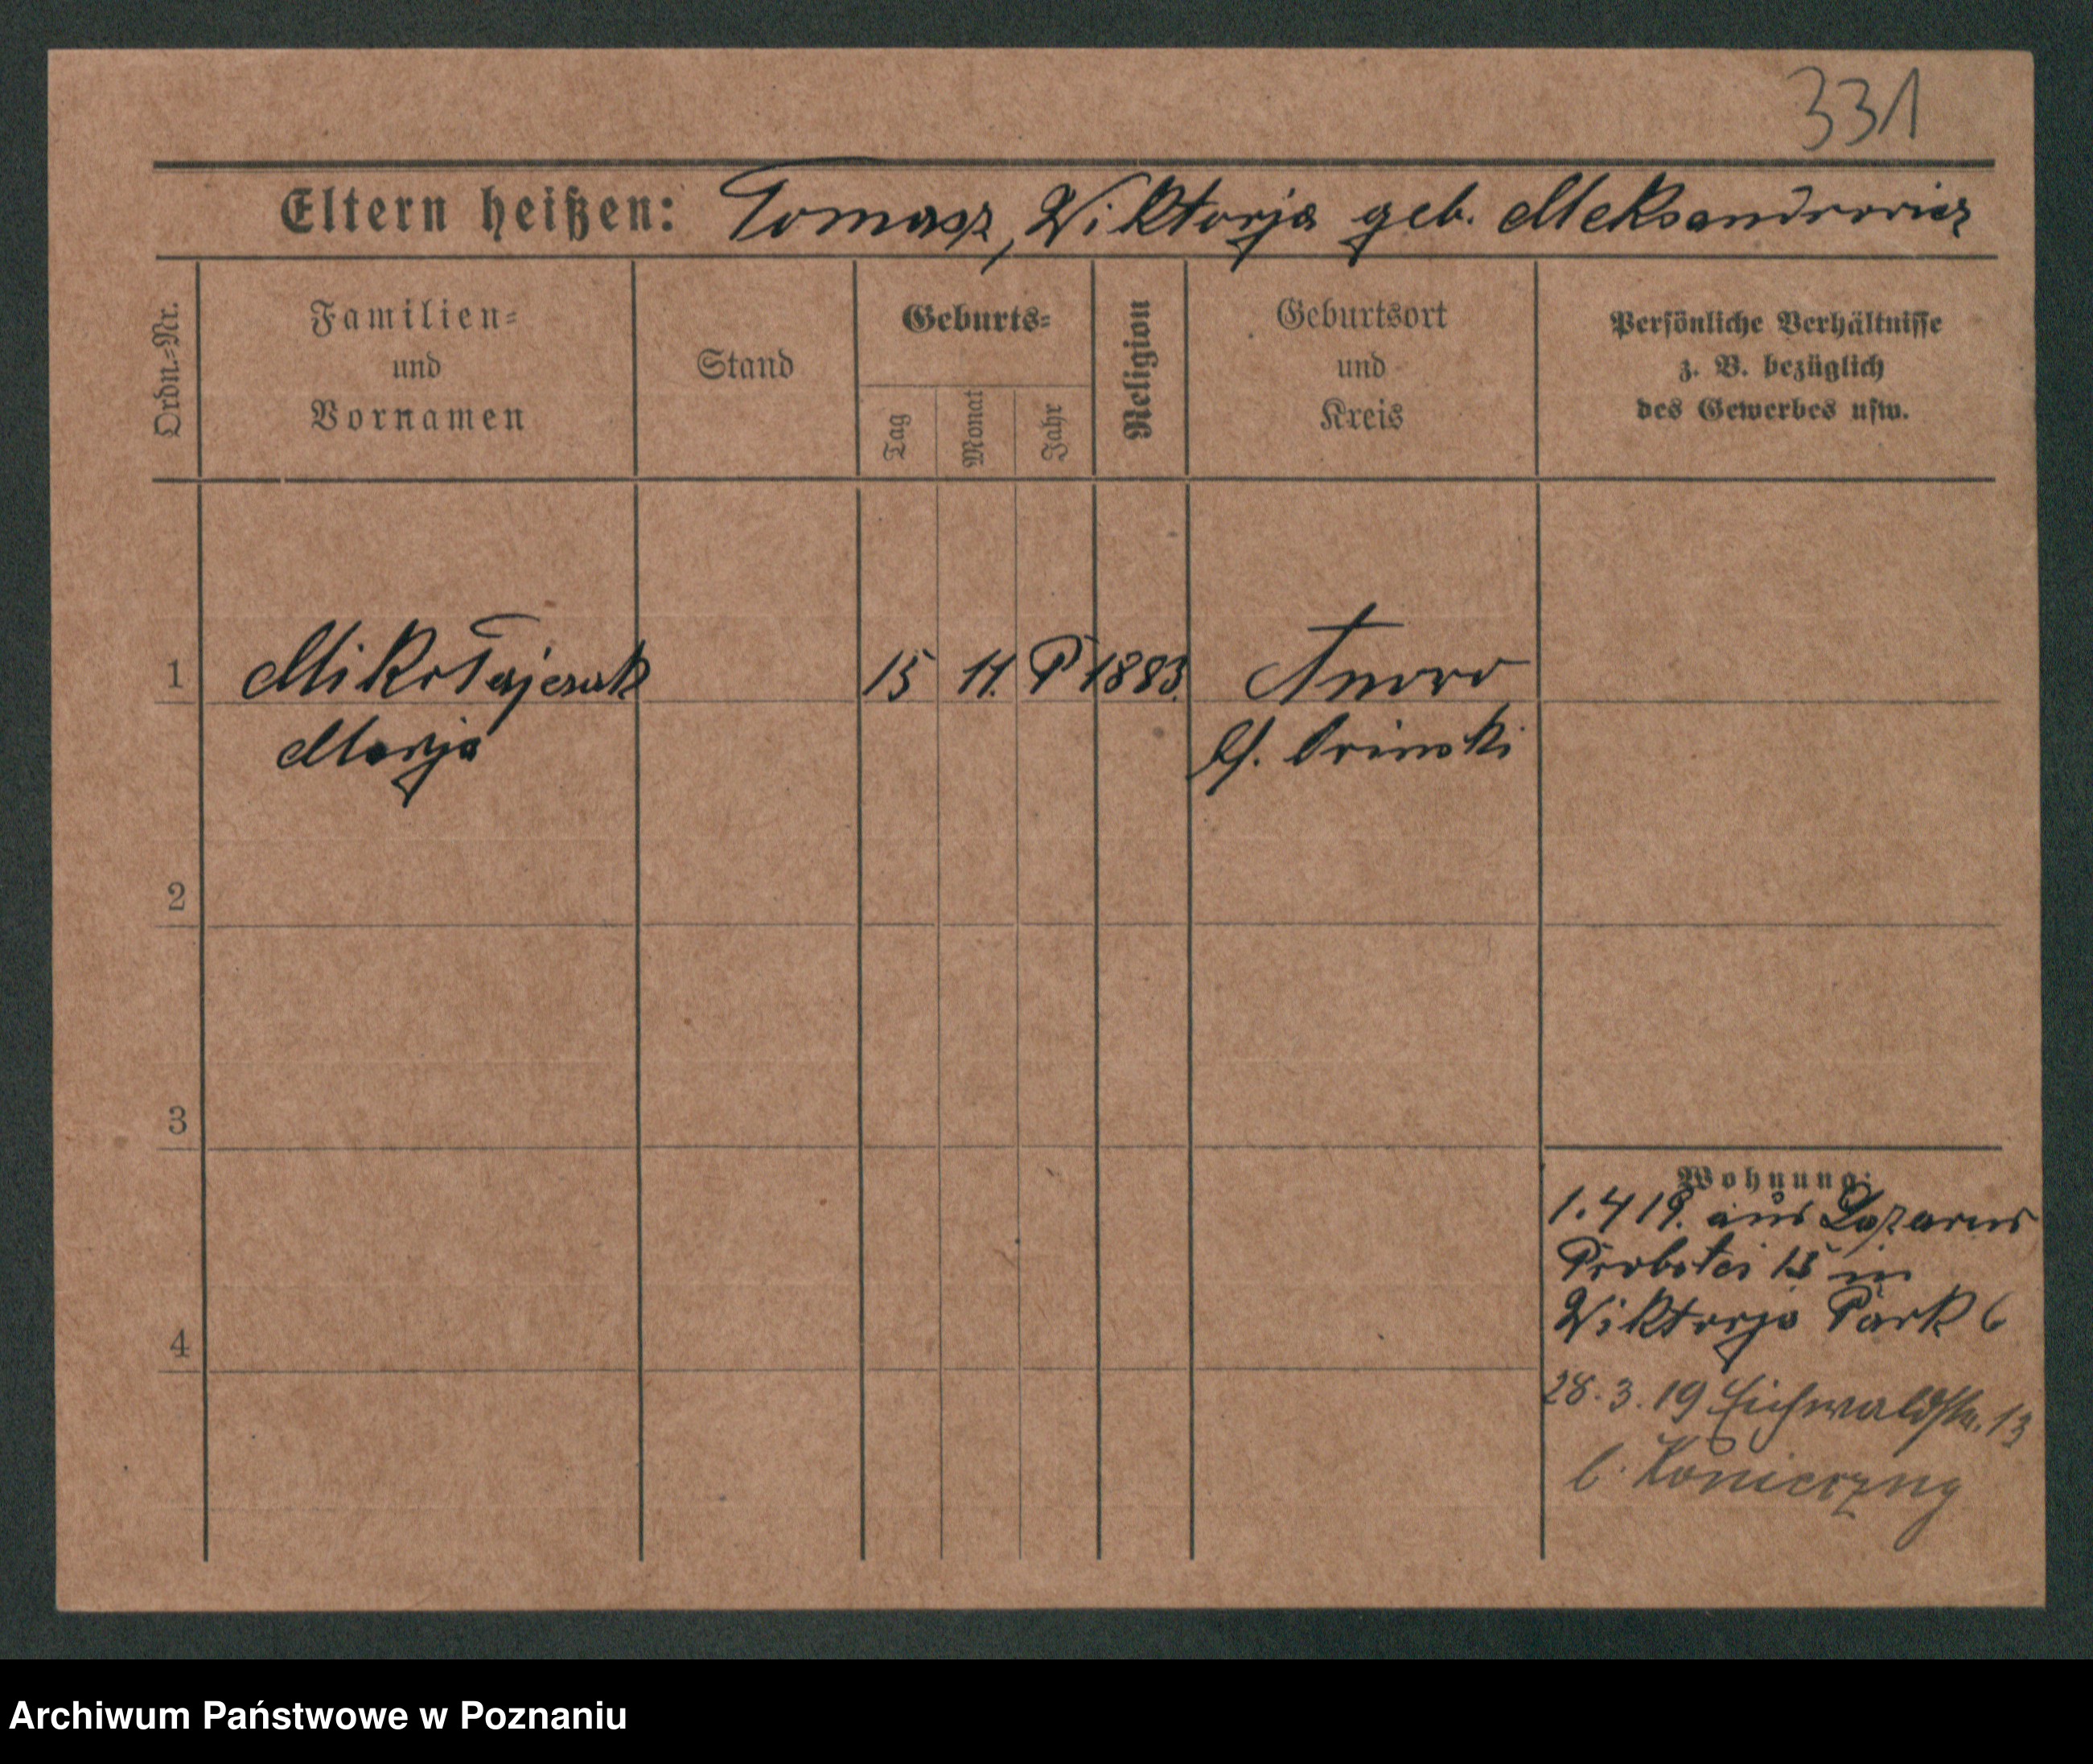 331
Eltern heißen: Tomasz, Wiktorja geb. Aleksandrowicz
Ordn.-Nr.
Familien-
und
Vornamen
Stand
Geburts-
Tag
Monat
Jahr
Religion
Geburtsort
und
Kreis
Persönliche Verhältnisse
z. B. bezüglich
des Gewerbes usw.
1
Mikołajczak
15 11. P 1883.
Marja
2
3
4
Wohnung:
1.4 19. aus Lazarus
Probstei 15 in
Wiktorja Park 6
28.3.19 Eichwaldstr. 13
b. Konieczny
Archiwum Państwowe w Poznaniu